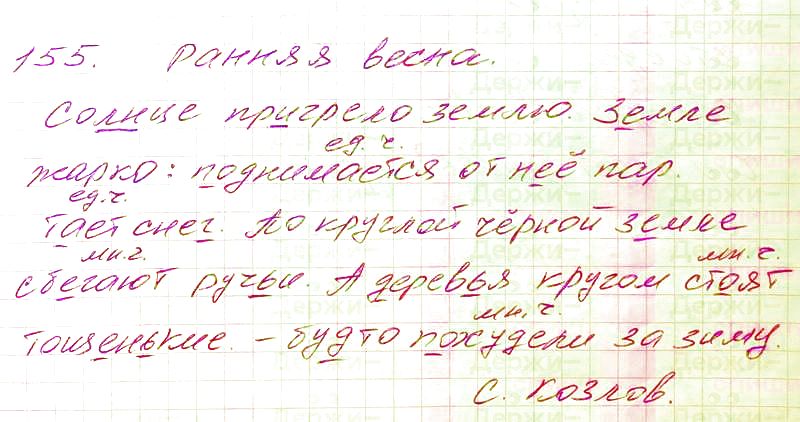 155. Ранняя весна.
Солнце пригрело землю. Земле
ед.ч.
жарко: поднимается от неё пар.
ед.ч.
Тает снег. По круглой чёрной земле
мн.ч. мн.ч.
сбегают ручьи. А деревья кругом стоят
мн.ч.
тощенькие. - будто похудели за зиму.
С. Козлов.